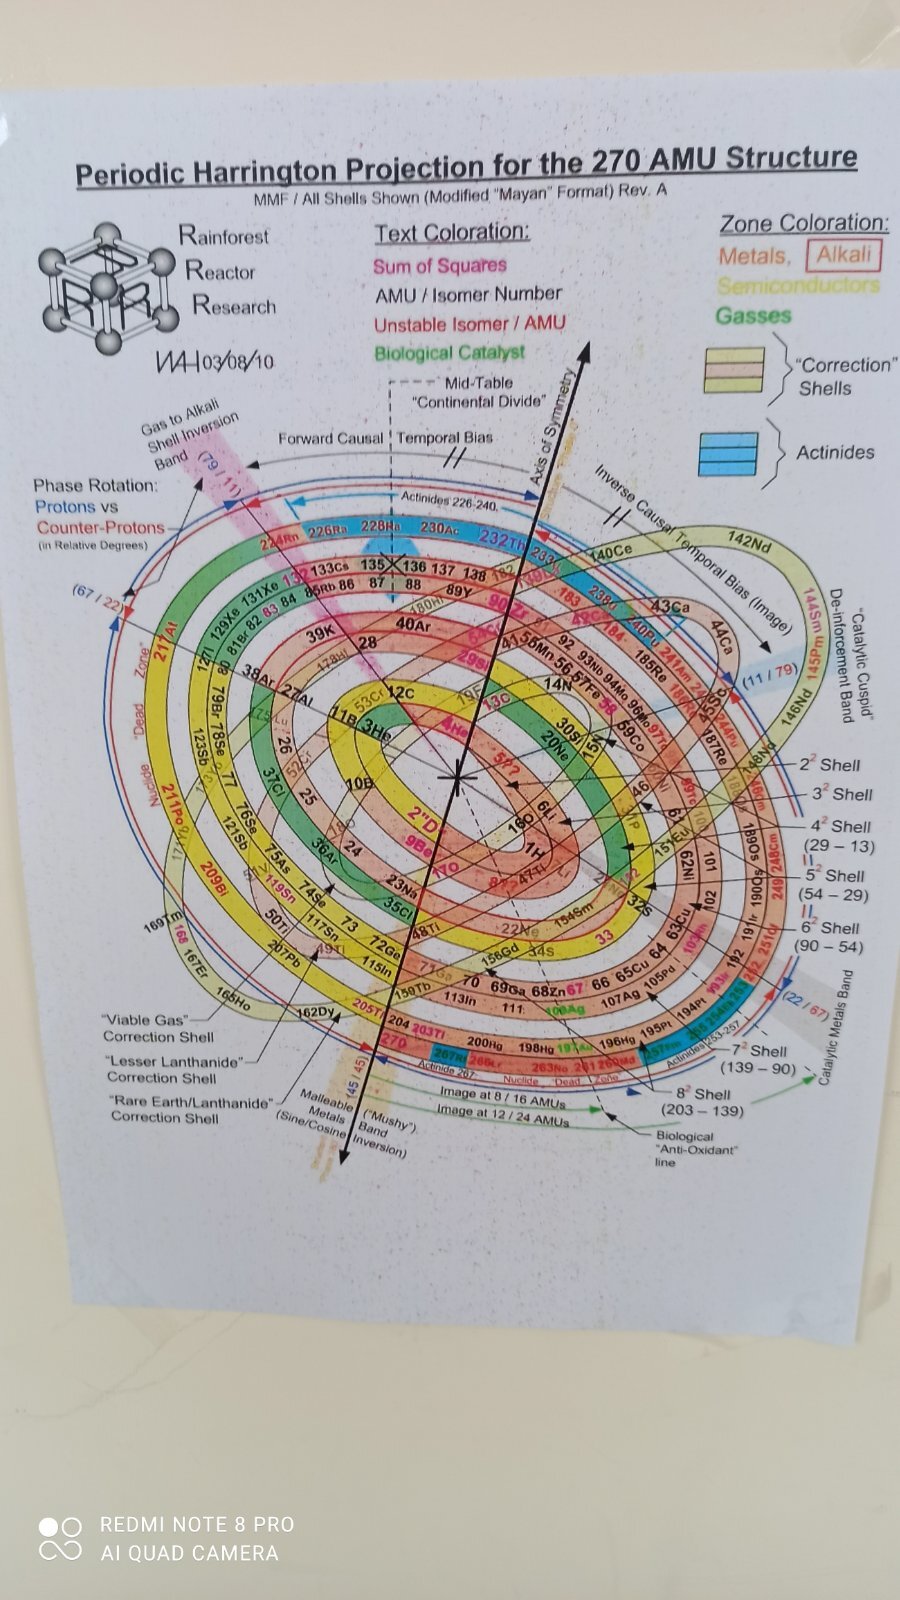 Periodic Harrington Projection for the 270 AMU Structure
MMF / All Shells Shown (Modified "Mayan" Format) Rev. A
Rainforest
Reactor
Research
03/08/10
Text Coloration:
Sum of Squares
AMU / Isomer Number
Unstable Isomer / AMU
Biological Catalyst
Zone Coloration:
Metals, Alkali
Semiconductors
Gasses
"Correction"
Shells
Actinides
Mid-Table
"Continental Divide"
Axis of Symmetry
Gas to Alkali
Shell Inversion
Band (79 / 11)
Forward Causal Temporal Bias
Inverse Causal Temporal Bias (Image)
Phase Rotation:
Protons vs
Counter-Protons
(in Relative Degrees)
(67 / 22)
Actinides 226-240.
224Rn 226Ra 228Ra 230Ac 232Th
140Ce 142Nd
144Sm
145Pm
146Nd
148Nd
"Catalytic Cuspid"
De-inforcement Band
(11 / 79)
133Cs 135 136 137 138
129Xe 131Xe
85Rb 86 87 88 89Y
81Br 82 83 84
43Ca
44Ca
183
184
185Re
187Re
39K 40Ar
28
92 93Nb 94Mo
55Mn 56 57Fe
59Co
38Ar 27Al
12C
13C
14N
11B 3He
4He
30Si
15N
20Ne
10B
5??
6Li
16O
1H
2"D"
9Be
217At
127I
79Br
78Se
77
76Se
75As
74Se
73
72Ge
26
25
24
23Na
37Cl
36Ar
35Cl
123Sb
121Sb
119Sn
117Sn
115In
211Po
209Bi
207Pb
"Dead Zone"
Nuclide
50Ti
49Ti
48Ti
47Ti
32S
33
34S
22Ne
154Sm
156Gd
159Tb
162Dy
165Ho
167Er
168
169Tm
151Eu
62Ni
63Cu
64
65Cu
66
67
68Zn
69Ga
70
101
102
105Pd
107Ag
109Ag
111
113In
189Os
190Os
191Ir
192
193Ir
194Pt
195Pt
196Hg
198Hg
200Hg
203Tl
204
205Tl
270
248Cm
249
263No
Actinides 253-257
Actinide 267
Nuclide "Dead Zone"
2² Shell
3² Shell
4² Shell
(29 – 13)
5² Shell
(54 – 29)
6² Shell
(90 – 54)
(22 / 67)
7² Shell
(139 – 90)
8² Shell
(203 – 139)
Catalytic Metals Band
"Viable Gas"
Correction Shell
"Lesser Lanthanide"
Correction Shell
"Rare Earth/Lanthanide"
Correction Shell
(45 / 45)
Malleable ("Mushy")
Metals Band
(Sine/Cosine Inversion)
Image at 8 / 16 AMUs
Image at 12 / 24 AMUs
Biological
"Anti-Oxidant"
line
REDMI NOTE 8 PRO
AI QUAD CAMERA